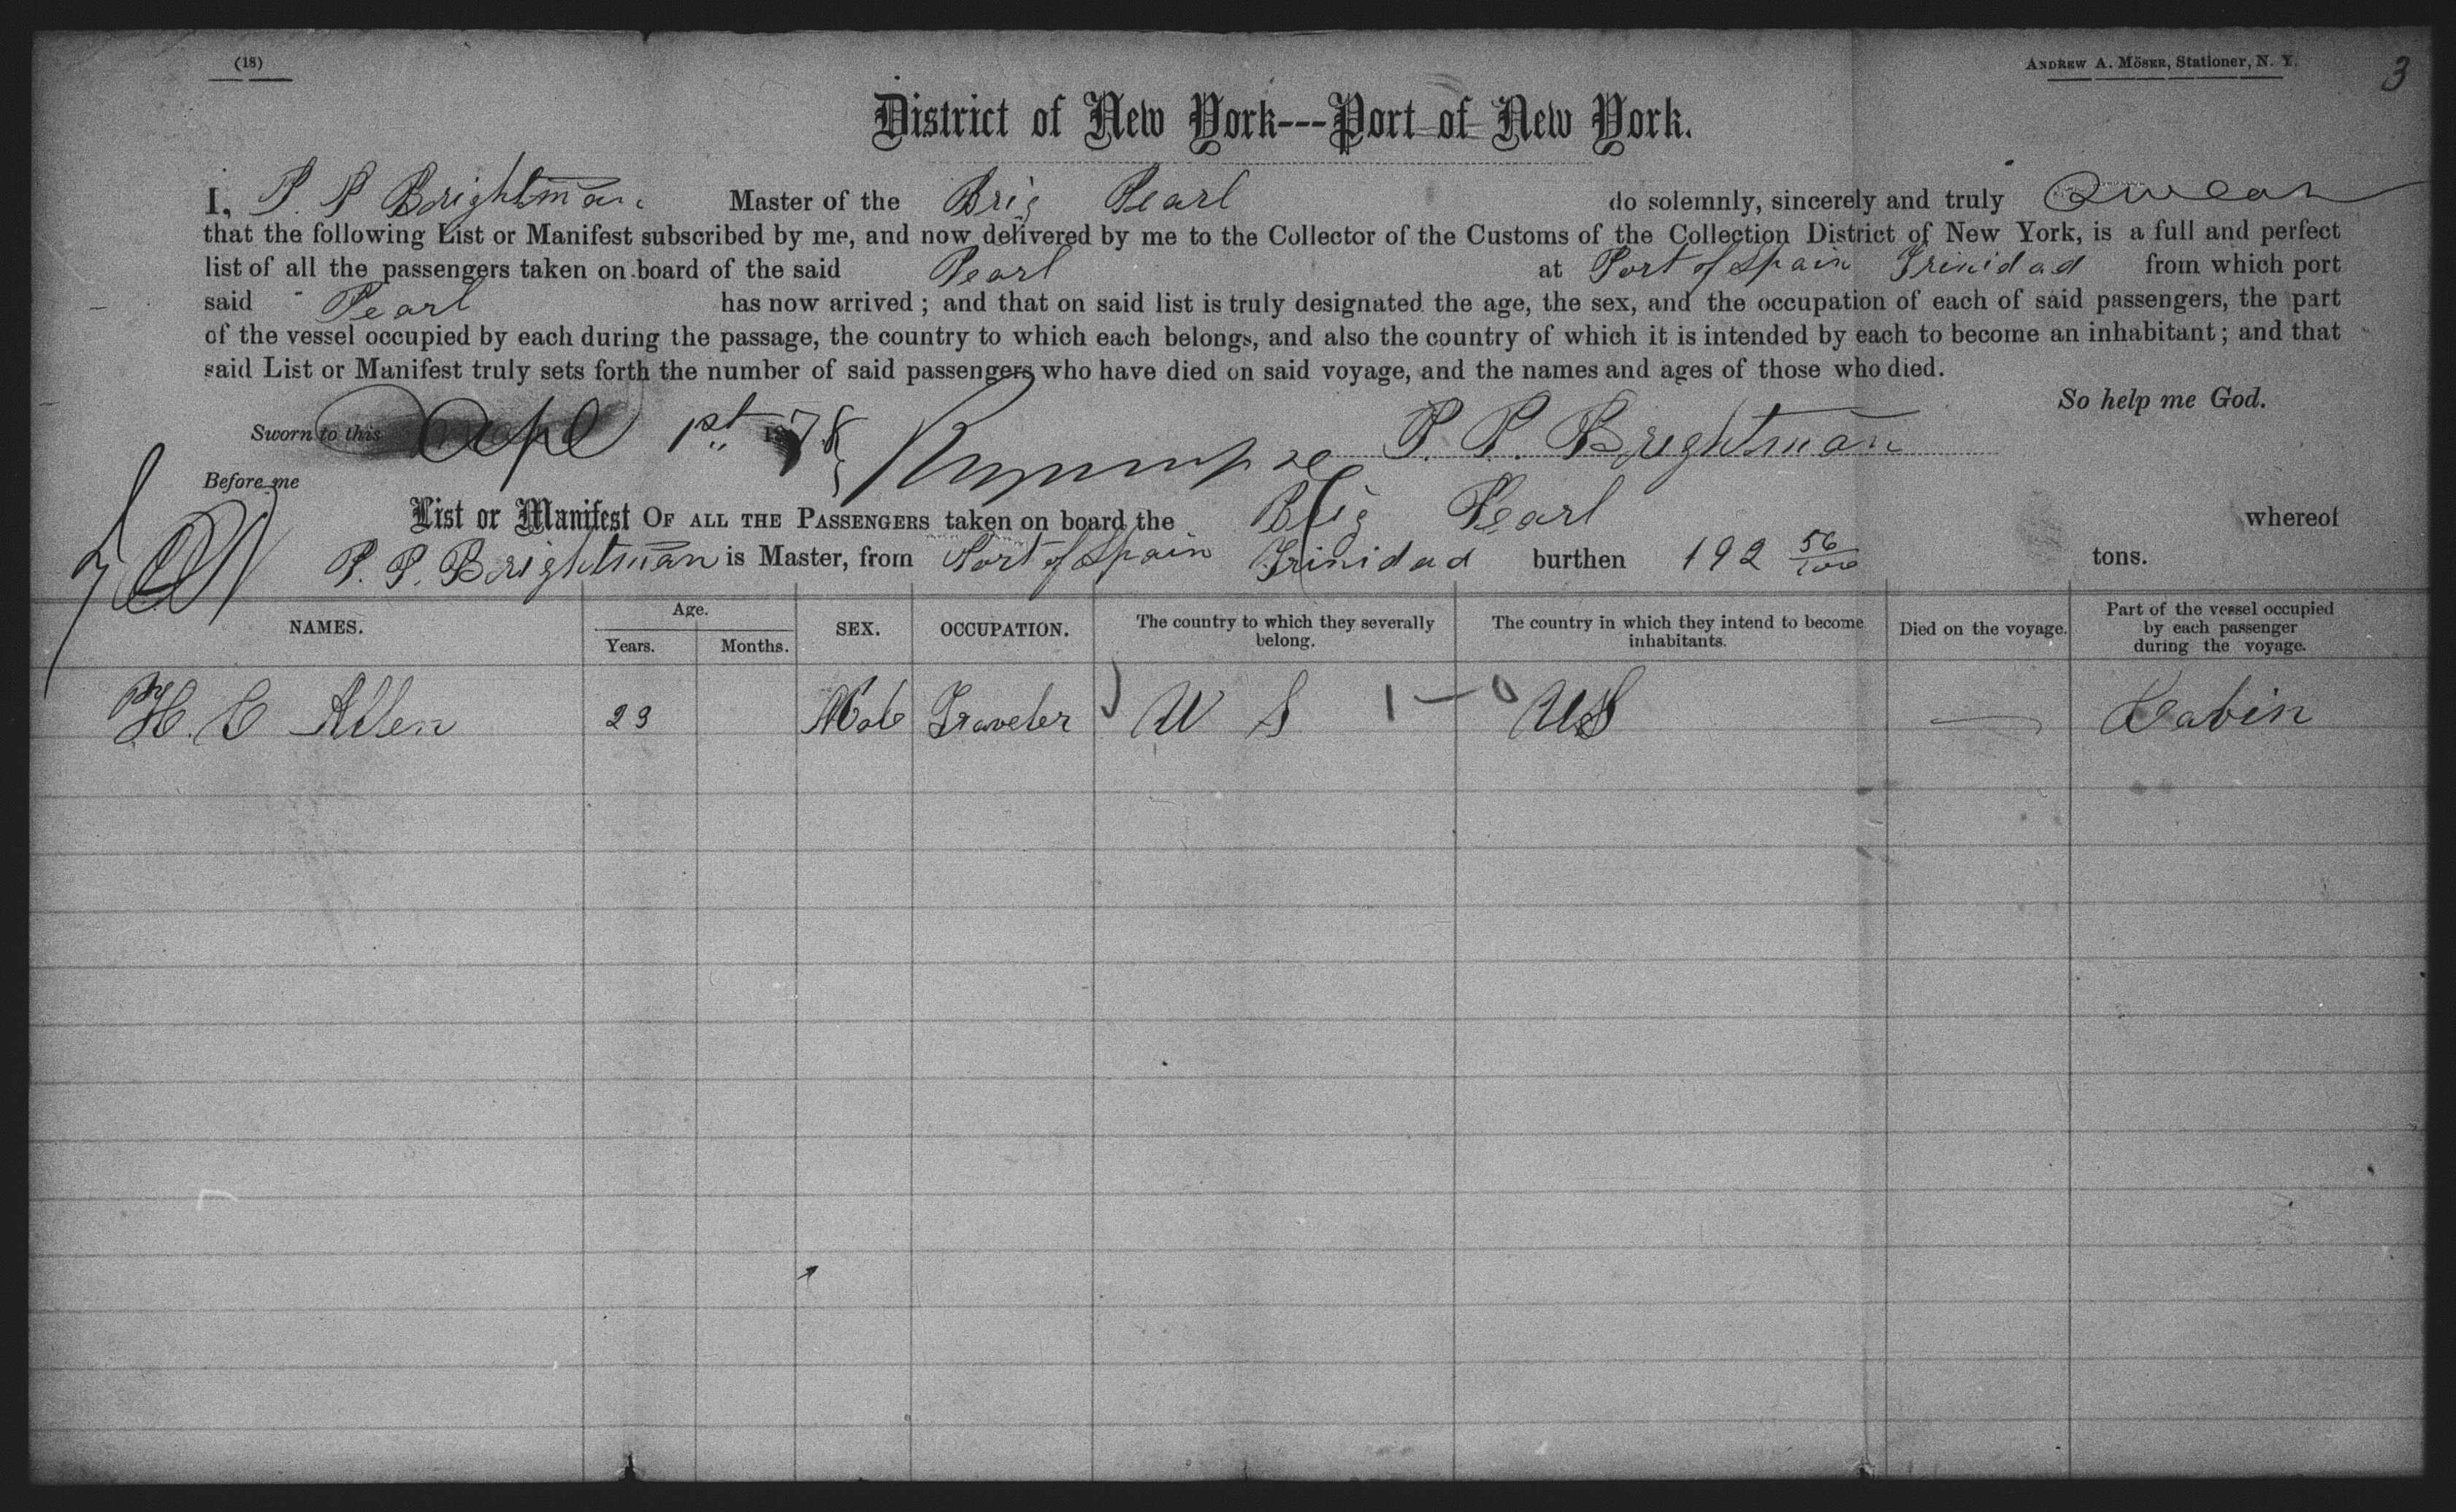 (18)
ANDREW A. MÖSER, Stationer, N. Y.
3
District of New York---Port of New York.
I, P. P Brightman Master of the Brig Pearl do solemnly, sincerely and truly Swear
that the following List or Manifest subscribed by me, and now delivered by me to the Collector of the Customs of the Collection District of New York, is a full and perfect
list of all the passengers taken on board of the said Pearl at Port of Spain Trinidad from which port
said Pearl has now arrived; and that on said list is truly designated the age, the sex, and the occupation of each of said passengers, the part
of the vessel occupied by each during the passage, the country to which each belongs, and also the country of which it is intended by each to become an inhabitant; and that
said List or Manifest truly sets forth the number of said passengers who have died on said voyage, and the names and ages of those who died.
So help me God.
Sworn to this Apl 1st 1878 P. P. Brightman
Before me
List or Manifest OF ALL THE PASSENGERS taken on board the Brig Pearl whereof
P. P. Brightman is Master, from Port of Spain Trinidad burthen 192 56/100 tons.
NAMES. Age. Years. Months. SEX. OCCUPATION. The country to which they severally belong. The country in which they intend to become inhabitants. Died on the voyage. Part of the vessel occupied by each passenger during the voyage.
H. C Allen 23 Male Traveler U S 1 — 0 US — Cabin